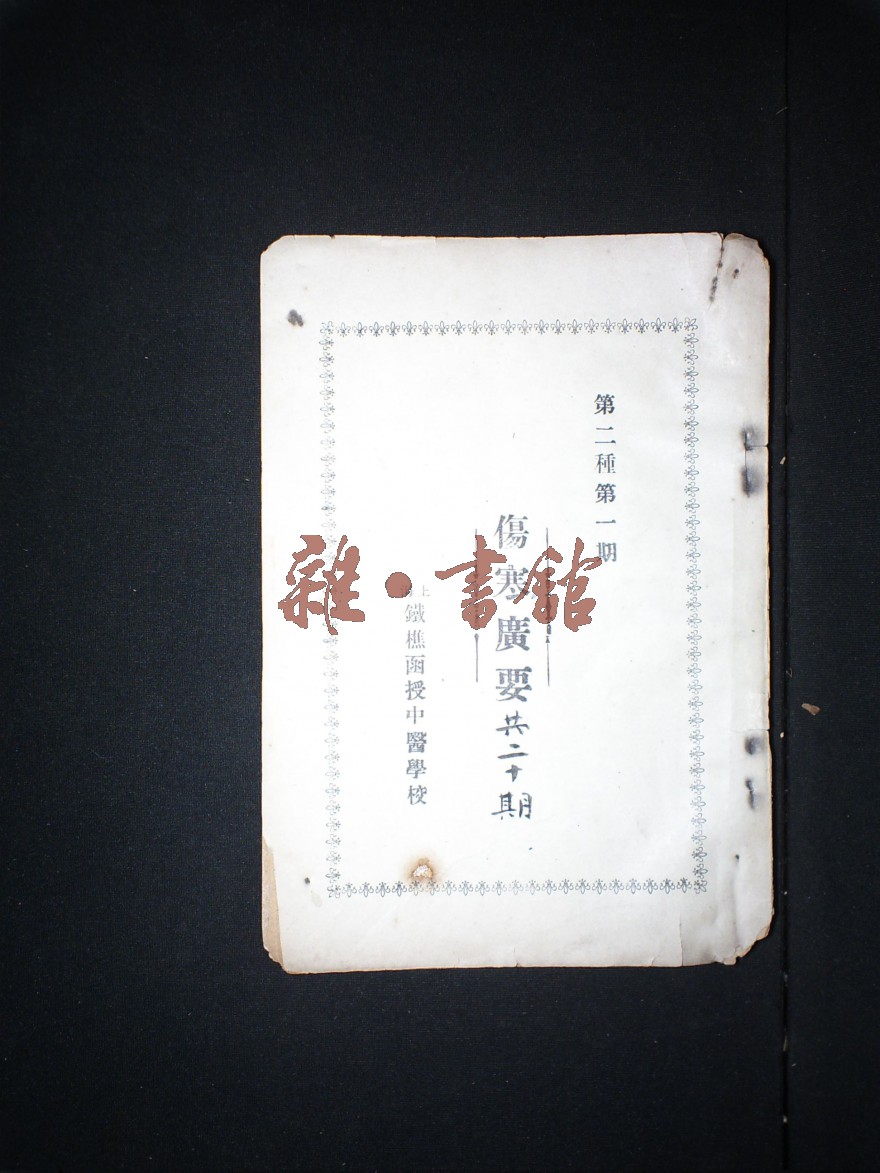 第二種第一期
傷寒廣要
共二十期
上海
鐵樵函授中醫學校
雜·書館